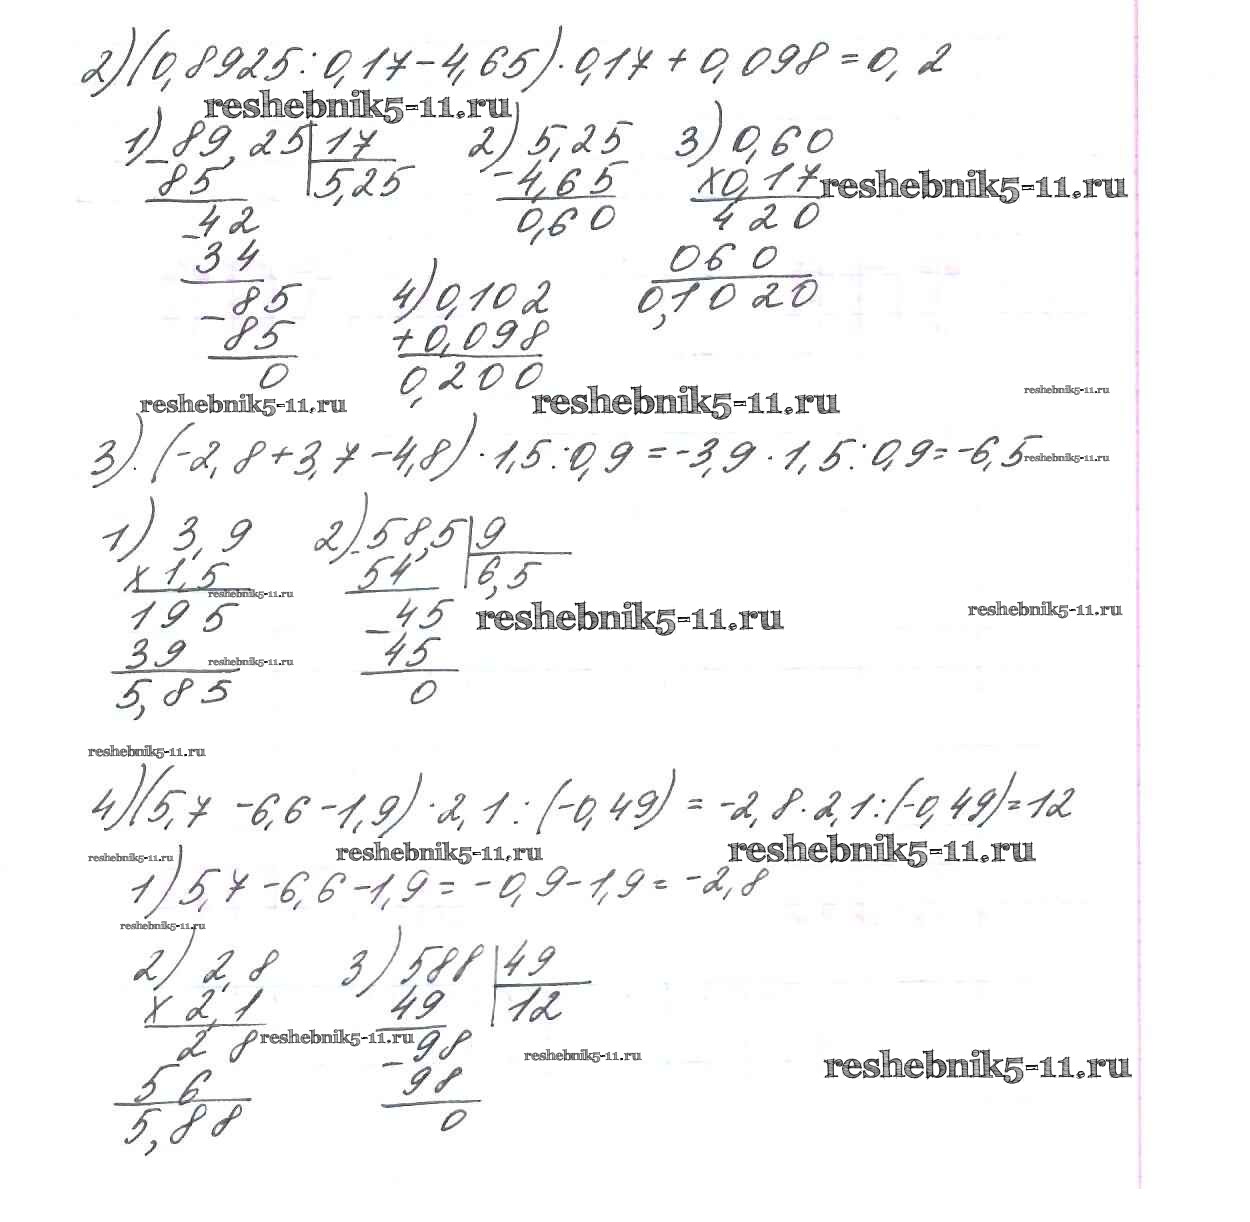 2) (0,8925:0,17-4,65)·0,17+0,098=0,2
reshebnik5-11.ru
1) 89,25 | 17 2) 5,25 3) 0,60
- 85 5,25 - 4,65 x 0,17 reshebnik5-11.ru
- 42 0,60 420
34 060
- 85 4) 0,102 0,1020
85 + 0,098
0 0,200
reshebnik5-11.ru reshebnik5-11.ru reshebnik5-11.ru
3). (-2,8+3,7-4,8)·1,5:0,9=-3,9·1,5:0,9=-6,5 reshebnik5-11.ru
1) 3,9 2) - 58,5 | 9
x 1,5 54 6,5
reshebnik5-11.ru
195 - 45 reshebnik5-11.ru reshebnik5-11.ru
39 45
reshebnik5-11.ru
5,85 0
reshebnik5-11.ru
4) (5,7-6,6-1,9)·2,1:(-0,49)=-2,8·2,1:(-0,49)=12
reshebnik5-11.ru reshebnik5-11.ru reshebnik5-11.ru
1) 5,7-6,6-1,9=-0,9-1,9=-2,8
reshebnik5-11.ru
2) 2,8 3) 588 | 49
x 2,1 49 12
28 reshebnik5-11.ru - 98 reshebnik5-11.ru reshebnik5-11.ru
56 98
5,88 0